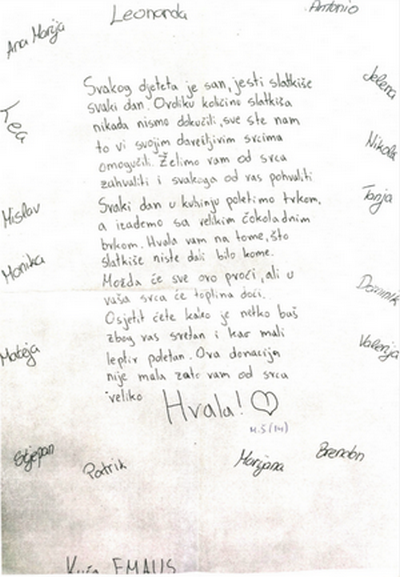 Leonarda
Antonio
Ana Marija
Jelena
Lea
Nikola
Tanja
Mislav
Monika
Dominik
Valerija
Mateja
Svakog djeteta je san, jesti slatkiše
svaki dan. Ovoliku količinu slatkiša
nikada nismo dokučili, sve ste nam
to vi svojim darežljivim srcima
omogućili. Želimo vam od srca
zahvaliti i svakoga od vas pohvaliti
Svaki dan u kuhinju poletimo trkom,
a izađemo sa velikim čokoladnim
brkom. Hvala vam na tome, što
slatkiše niste dali bilo kome.
Možda će sve ovo proći, ali u
vaša srca će toplina doći.
Osjetit ćete kako je netko baš
zbog vas sretan i kao mali
leptir poletan. Ova donacija
nije mala zato vam od srca
veliko Hvala! ♡
M.S (14)
Stjepan
Patrik
Marijana
Brendon
Kuća EMAUS